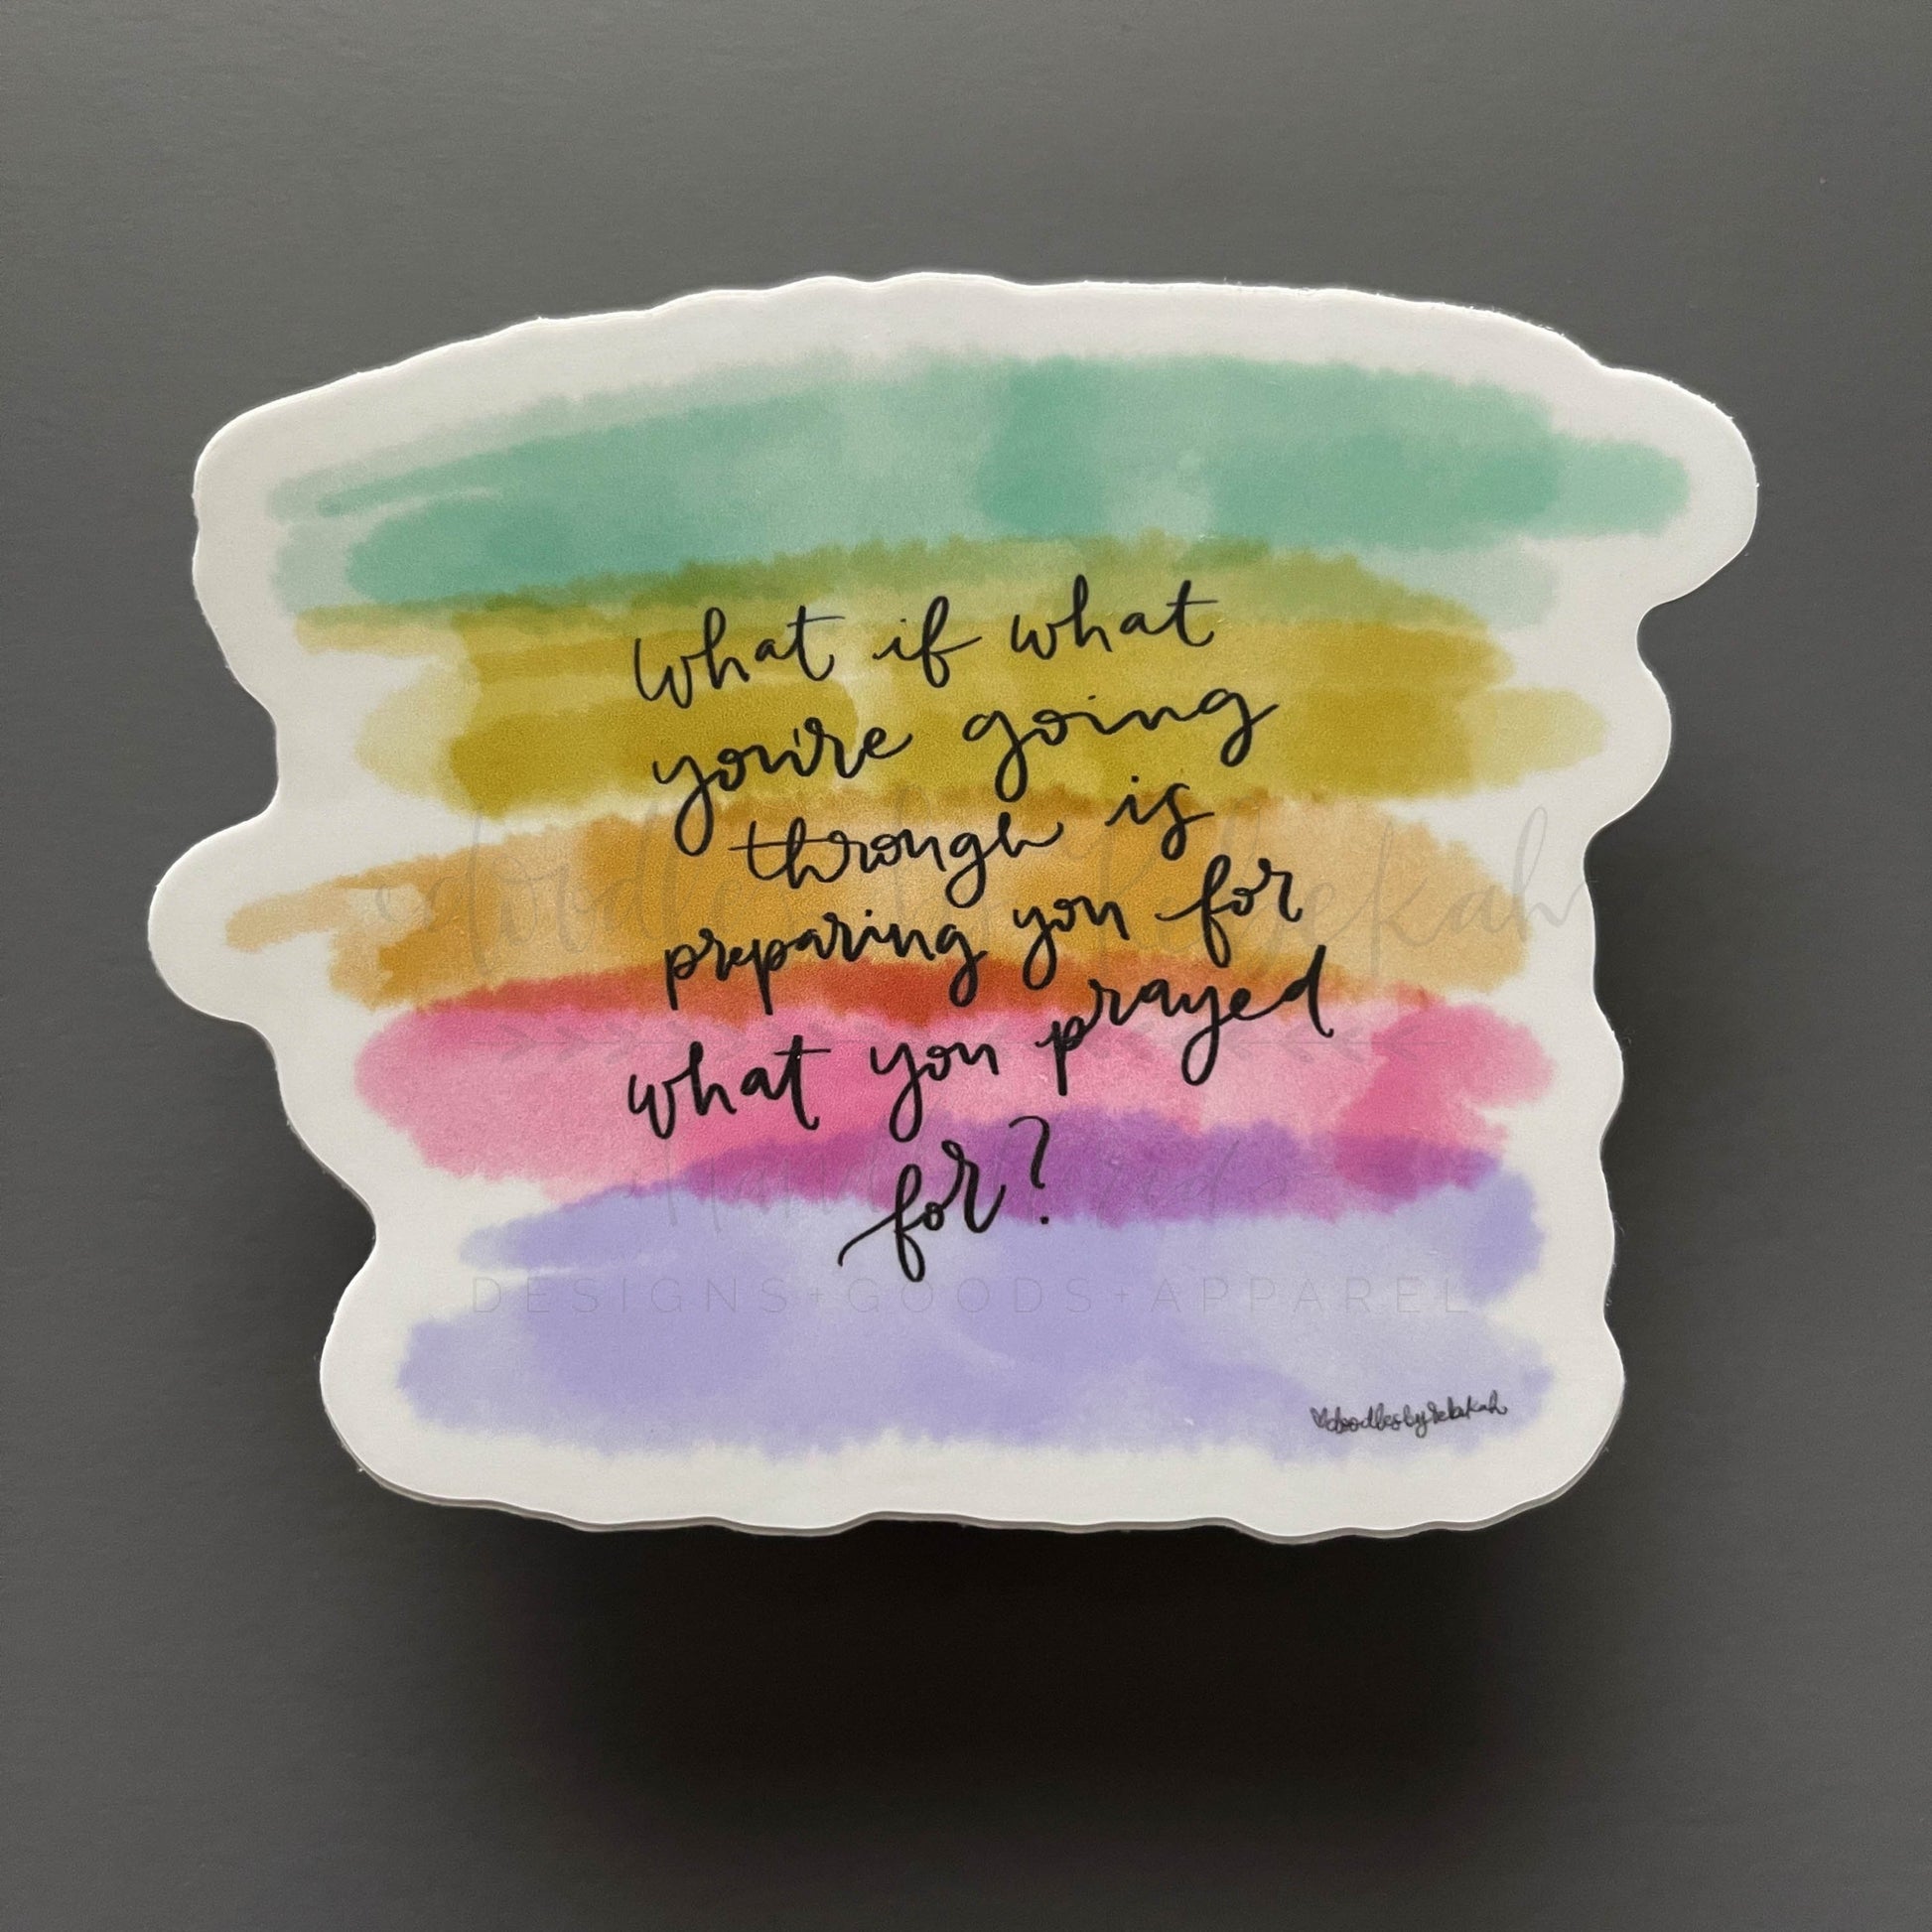 what if what
you're going
through is
preparing you for
what you prayed
for?
doodles by Rebekah
DESIGNS + GOODS + APPAREL
doodlesbyrebekah